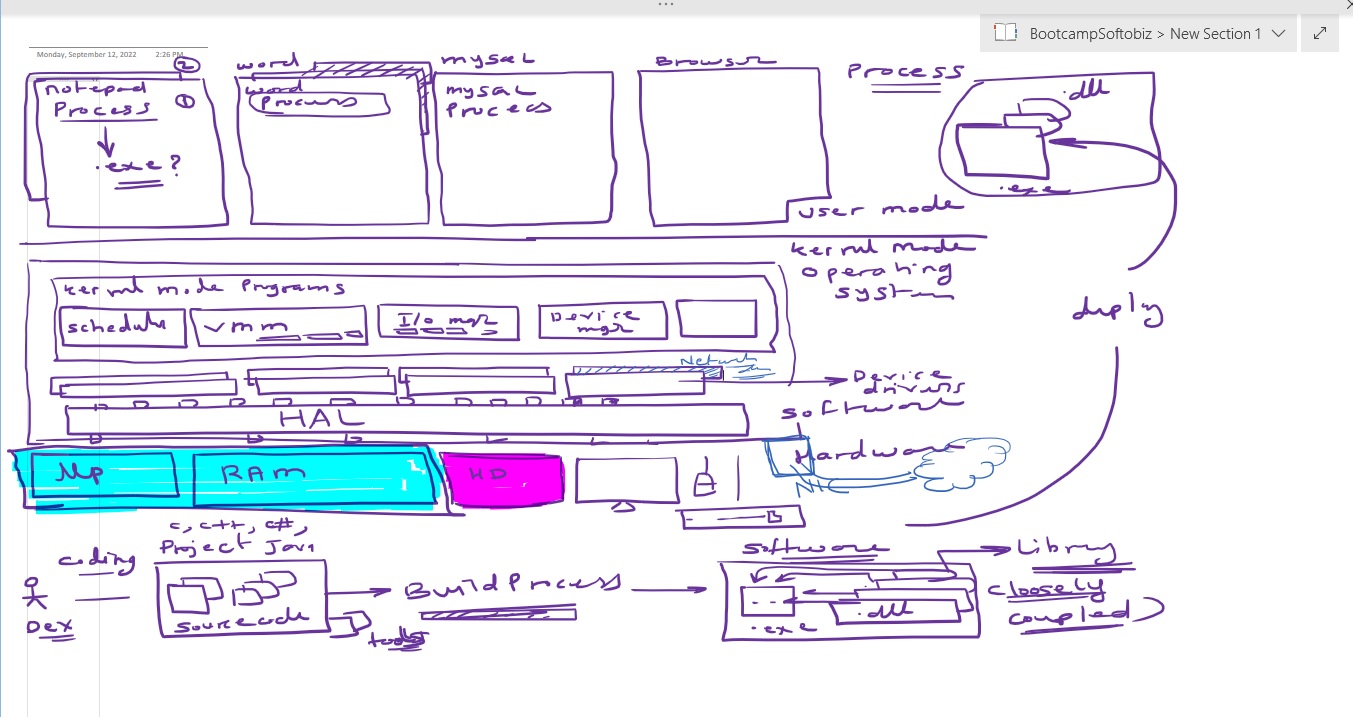 BootcampSoftobiz > New Section 1
Monday, September 12, 2022 2:26 PM
2
notepad
Process
1
.exe?
word
word
Process
mysql
mysql
Process
Browser
Process
.dll
.exe
user mode
kernel mode
operating
system
kernel mode Programs
scheduler
vmm
I/o mgr
Device
mgr
Network
Device
drivers
software
HAL
Hardware
NIC
Mp
RAM
HD
deploy
c, c++, c#,
Project Java
coding
Dex
sourcecode
tools
Build Process
software
.exe
.dll
Library
cloosely
coupled